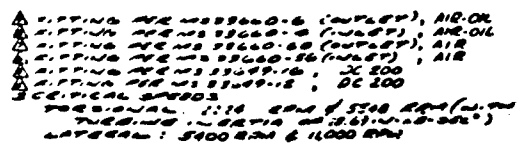 FITTING PER MS 33660-6 (OUTLET), AIR-OIL
FITTING PER MS 33660-6 (INLET), AIR-OIL
FITTING PER MS 33660-60 (OUTLET), AIR
FITTING PER MS 33660-56 (INLET), AIR
FITTING PER MS 33649-16, DC 200
FITTING PER MS 33649-12, DC 200
3 CRITICAL SPEEDS
TORSIONAL: RPM & 5540 RPM (WITH
TURBINE INERTIA OF
LATERAL: 5400 RPM & 16,000 RPM